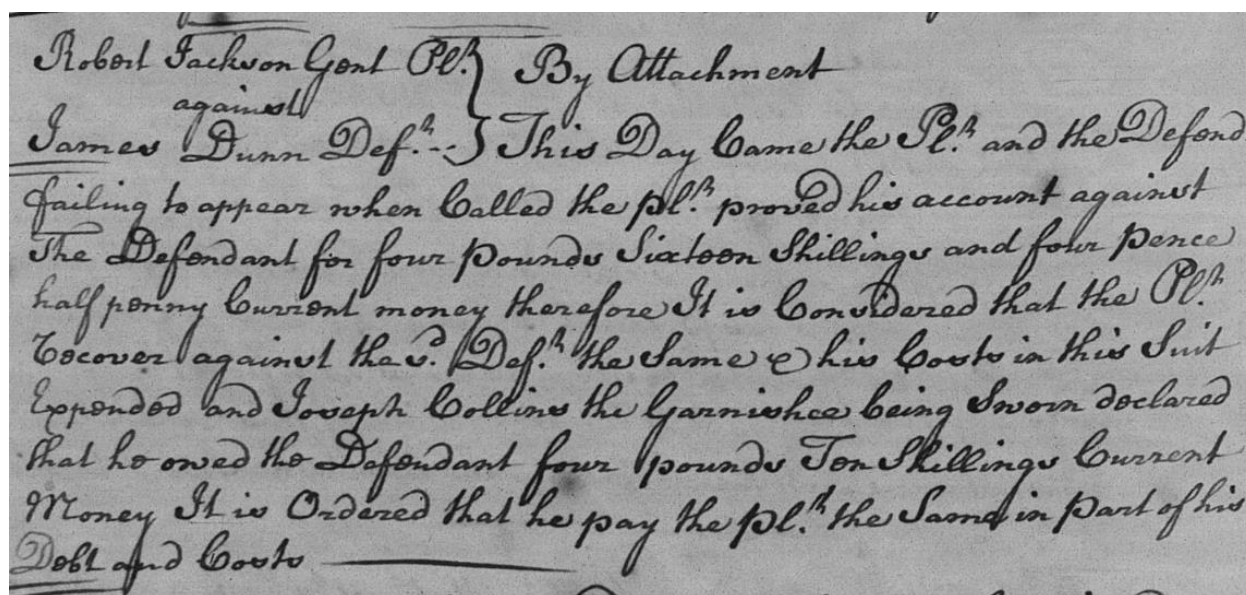 Robert Jackson Gent Pl.ft } By Attachment
against
James Dunn Def.t -- } This Day Came the Pl.ft and the Defend
failing to appear when Called the pl.ft proved his account against
The Defendant for four pounds Sixteen Shillings and four pence
half penny Current money therefore It is Considered that the Pl.ft
recover against the s.d Def.t the Same & his Costs in this Suit
Expended and Joseph Collins the Garnishee being Sworn declared
that he owed the Defendant four pounds Ten Shillings Current
Money It is Ordered that he pay the pl.ft the Same in Part of his
Debt and Costs